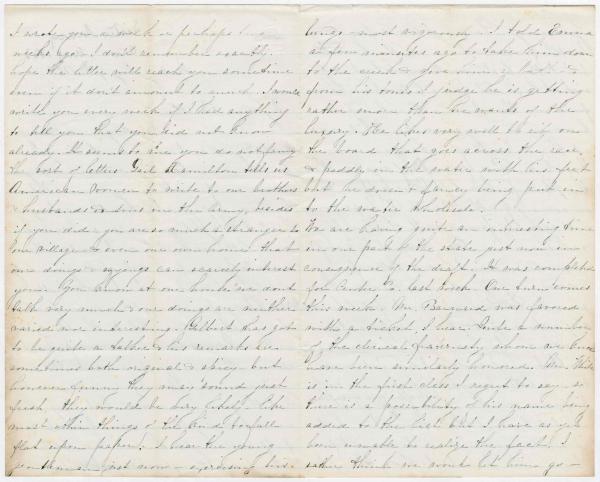 I wrote you a week or perhaps two
weeks ago - I don't remember exactly.
hope the letter will reach you sometime
even if it don't amount to much. I would
write you every week if I had anything
to tell you that you did not know
already. It seems to me you do not
the sort of letters Gail Hamilton tells us
American women to write to our brothers
husbands & sons in the army, besides
if you did - you are so much a stranger to
our village & even our own home that
our doings & sayings can scarcely interest
you. You know at our house we don't
talk very much & our doings are neither
varied nor interesting. Gilbert has got
to be quite a talker & his remarks are
sometimes both original & spicy - but
however funny they may sound just
fresh, they would be very likely - like
most other things of the kind to fall
flat upon paper. I hear the young
gentleman just now - exercising his
lungs - most vigorously. I told Emma
a few minutes ago to take him down
to the creek & give him a bath &
from his tones I judge he is getting
rather more than he wants of the
luxury. He likes very well to sit on
the board that goes across the race,
& paddle in the water with his feet
but he doesn't fancy being put in
to the water wholesale.
We are having quite an interesting time
in our part of the state just now in
consequence of the draft. It was completed
for Co. last week. Our turn comes
this week. Mr. Barnard was favored
with a ticket I hear. Quite a number
of the clerical fraternity whom we know
have been similarly honored. Mr. White
is in the first class I regret to say so
there is a possibility of his name being
added to the list but I have as yet
been unable to realize the fact. I
rather think we won't let him go -